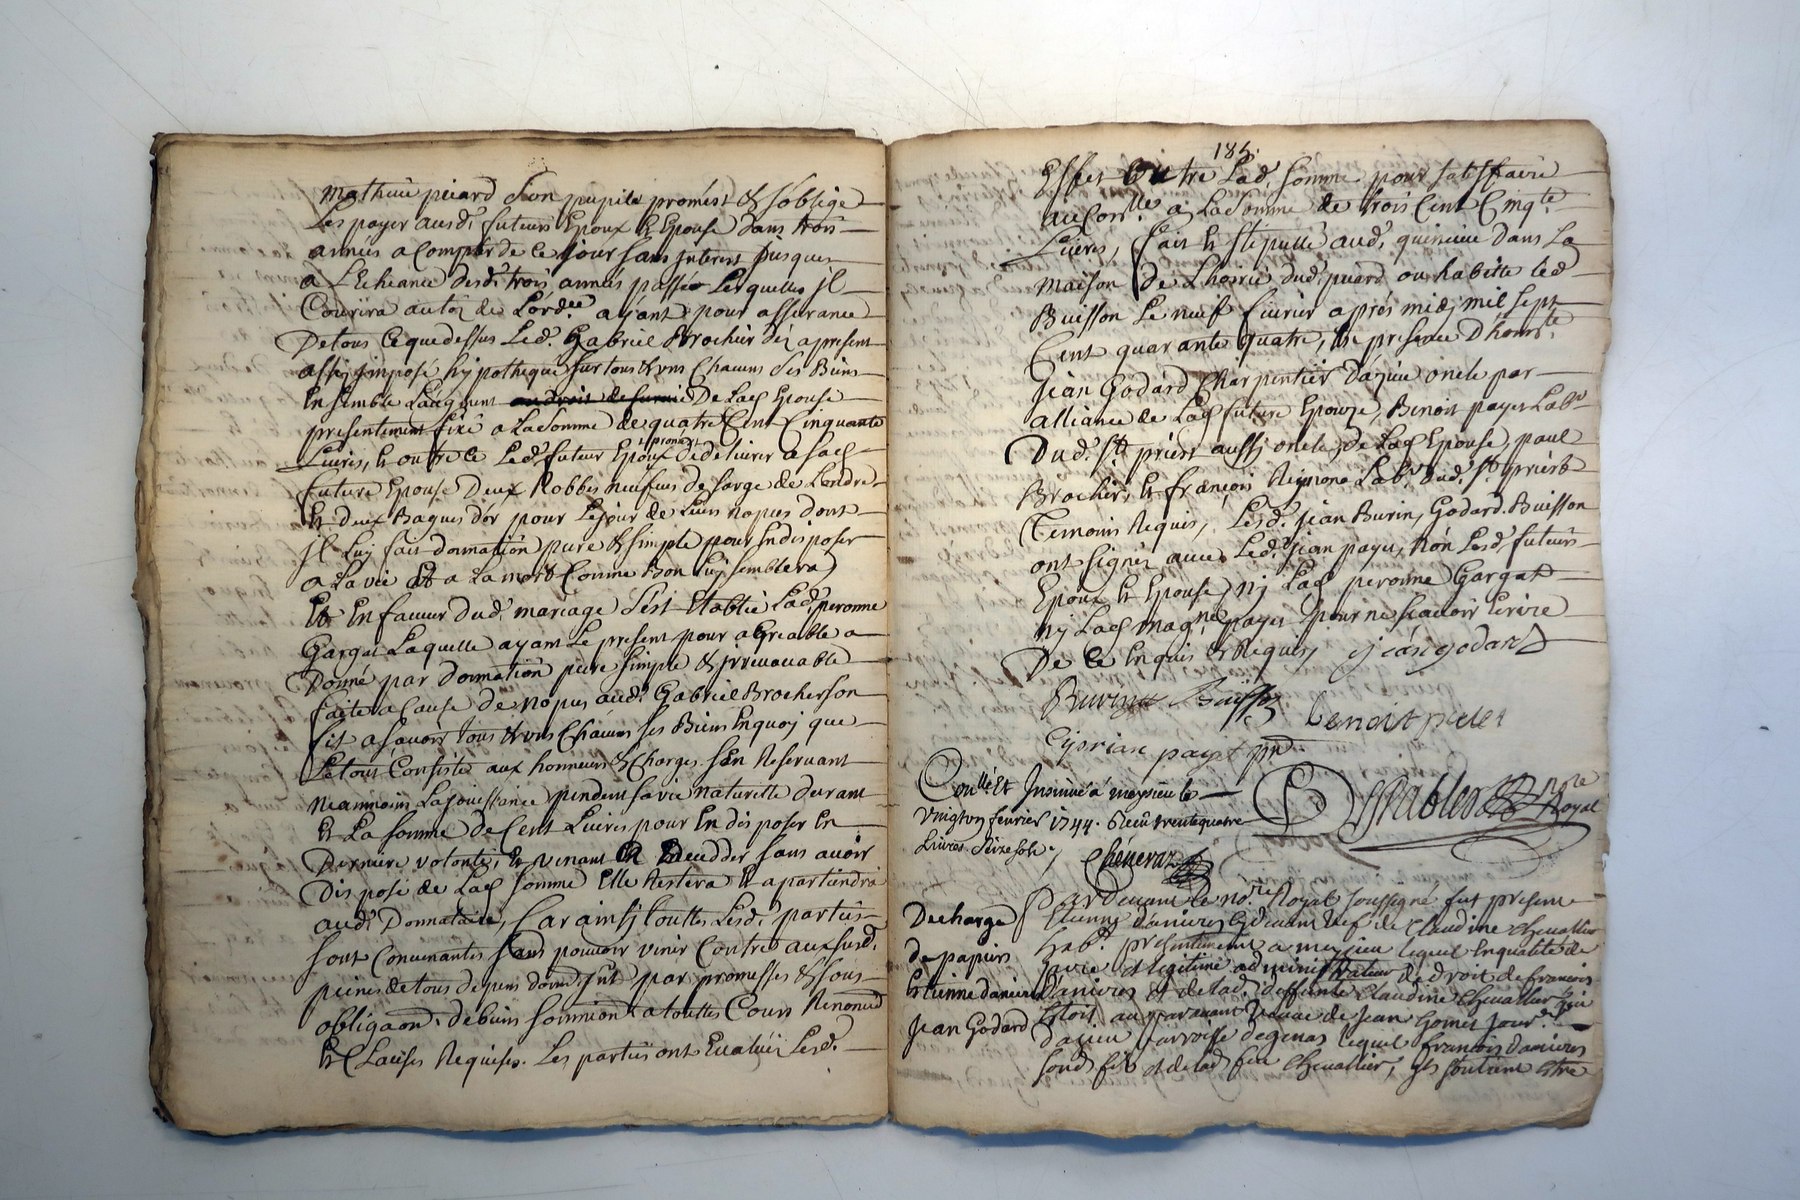 Mathieu piard son pupile promest & s'oblige
Les payer ausd. futeurs Epoux & Epouse dans trois
années a Compter de ce jour sans interest jusques
a L'Echeance desd. trois années passée Lesquelles jl
Courira autoz de L'ord.ce ayant pour assurance
De tous ce que dessus Led. Gabriel Brochier déz apresent
assis imposé hypothequé sur tous & uns Chacuns ses Biens
Ensemble L'augment au droit de survie De Lad. Epouse
presentement fixé a La somme de quatre Cent Cinquante
Livres, & outre ce Led. futeur Epoux promest De delivrer a sad.
future Epouse Deux Robbes neufves de sarge de Londre
& deux Bagues d'or pour Le jour de Leurs nopces dont
jl Luy fait donnation pure & simple pour En disposer
a La vie Et a La mort Comme Bon Luy semblera
Et En faveur dud. mariage s'est Etablie Lad. peronne
Gargat Laquelle ayant Le present pour agreable a
Donné par donnation pure simple & jrrevocable
faite a Cause de nopces aud. Gabriel Brocher son
fils a savoir tous & uns Chacuns ses Biens En quoy que
Le tout Consiste aux honneurs & Charges s'En Reservant
neammoins La jouissance pendent sa vie naturelle durant
& La somme de Cent Livres pour En disposer En
Derniere volonté, & venant a deceder sans avoir
Disposé de Lad. somme Elle Restera & apartiendra
aud. Donnataire, Car ainsy touttes Lesd. parties
sont Convenantes sans pouvoir venir Contre aux susd.
peines de tous depens dom. & jnt. par promesses & sous
obligaon. de biens soumission a touttes Cours Renond
& Clauses Requises. Les parties ont Evalué Lesd.
185.
Effet Outre Lad. somme pour satisffaire
au Con.lle a La somme de trois Cent Cinq.te
Livres, fait & stipullé aud. quincieu Dans La
maison De L'hoirie dud. piard ou habitte led.
Buisson Le neuf fevrier après midy mil sept
Cent quarante quatre, En presence D'honn.te
Jean Godard Charpentier D'azieu oncle par
alliance de Lad. future Epouze, Benoit payet Lab.r
Dud. St. priest aussy oncle de Lad. Epouse, paul
Brochier, & françois Reymond Lab. dud. St. priest
temoins Requis, Lesd. Jean Burin, Godard. Buisson
ont signés avec Led. Jean payet, non Lesd. futeurs
Epoux & Epouse, ny Lad. peronne Gargat
ny Lad. mag.ne payet pour ne scavoir Ecrire
De ce Enquis & Requis, jean godard
Burin Buisson benoit paiet
Ciprian payet pnt
Con.llé Et Insinué à meyzieu le
vingt un fevrier 1744. Receu trente quatre
Livres Seize sols,
Cheneraz
Desrables no.re Royal
Pardevant Le no.re Royal soussigné fut present
Decharge
de papiers
Etienne danieres
Jean Godard
Etienne danieres Cydevant vef de Claudine chevallier
hab. presentement a meyzieu lequel En qualité de
pere et legitime administrateur de droit de francois
danieres et de lad. deffunte Claudine chevallier qui
Etoit auparavant veuve de Jean Gomet Jour.
d'azieu parroisse de genas lequel francois danieres
sond. fils et de lad. feu chevallier, jls soutient Etre